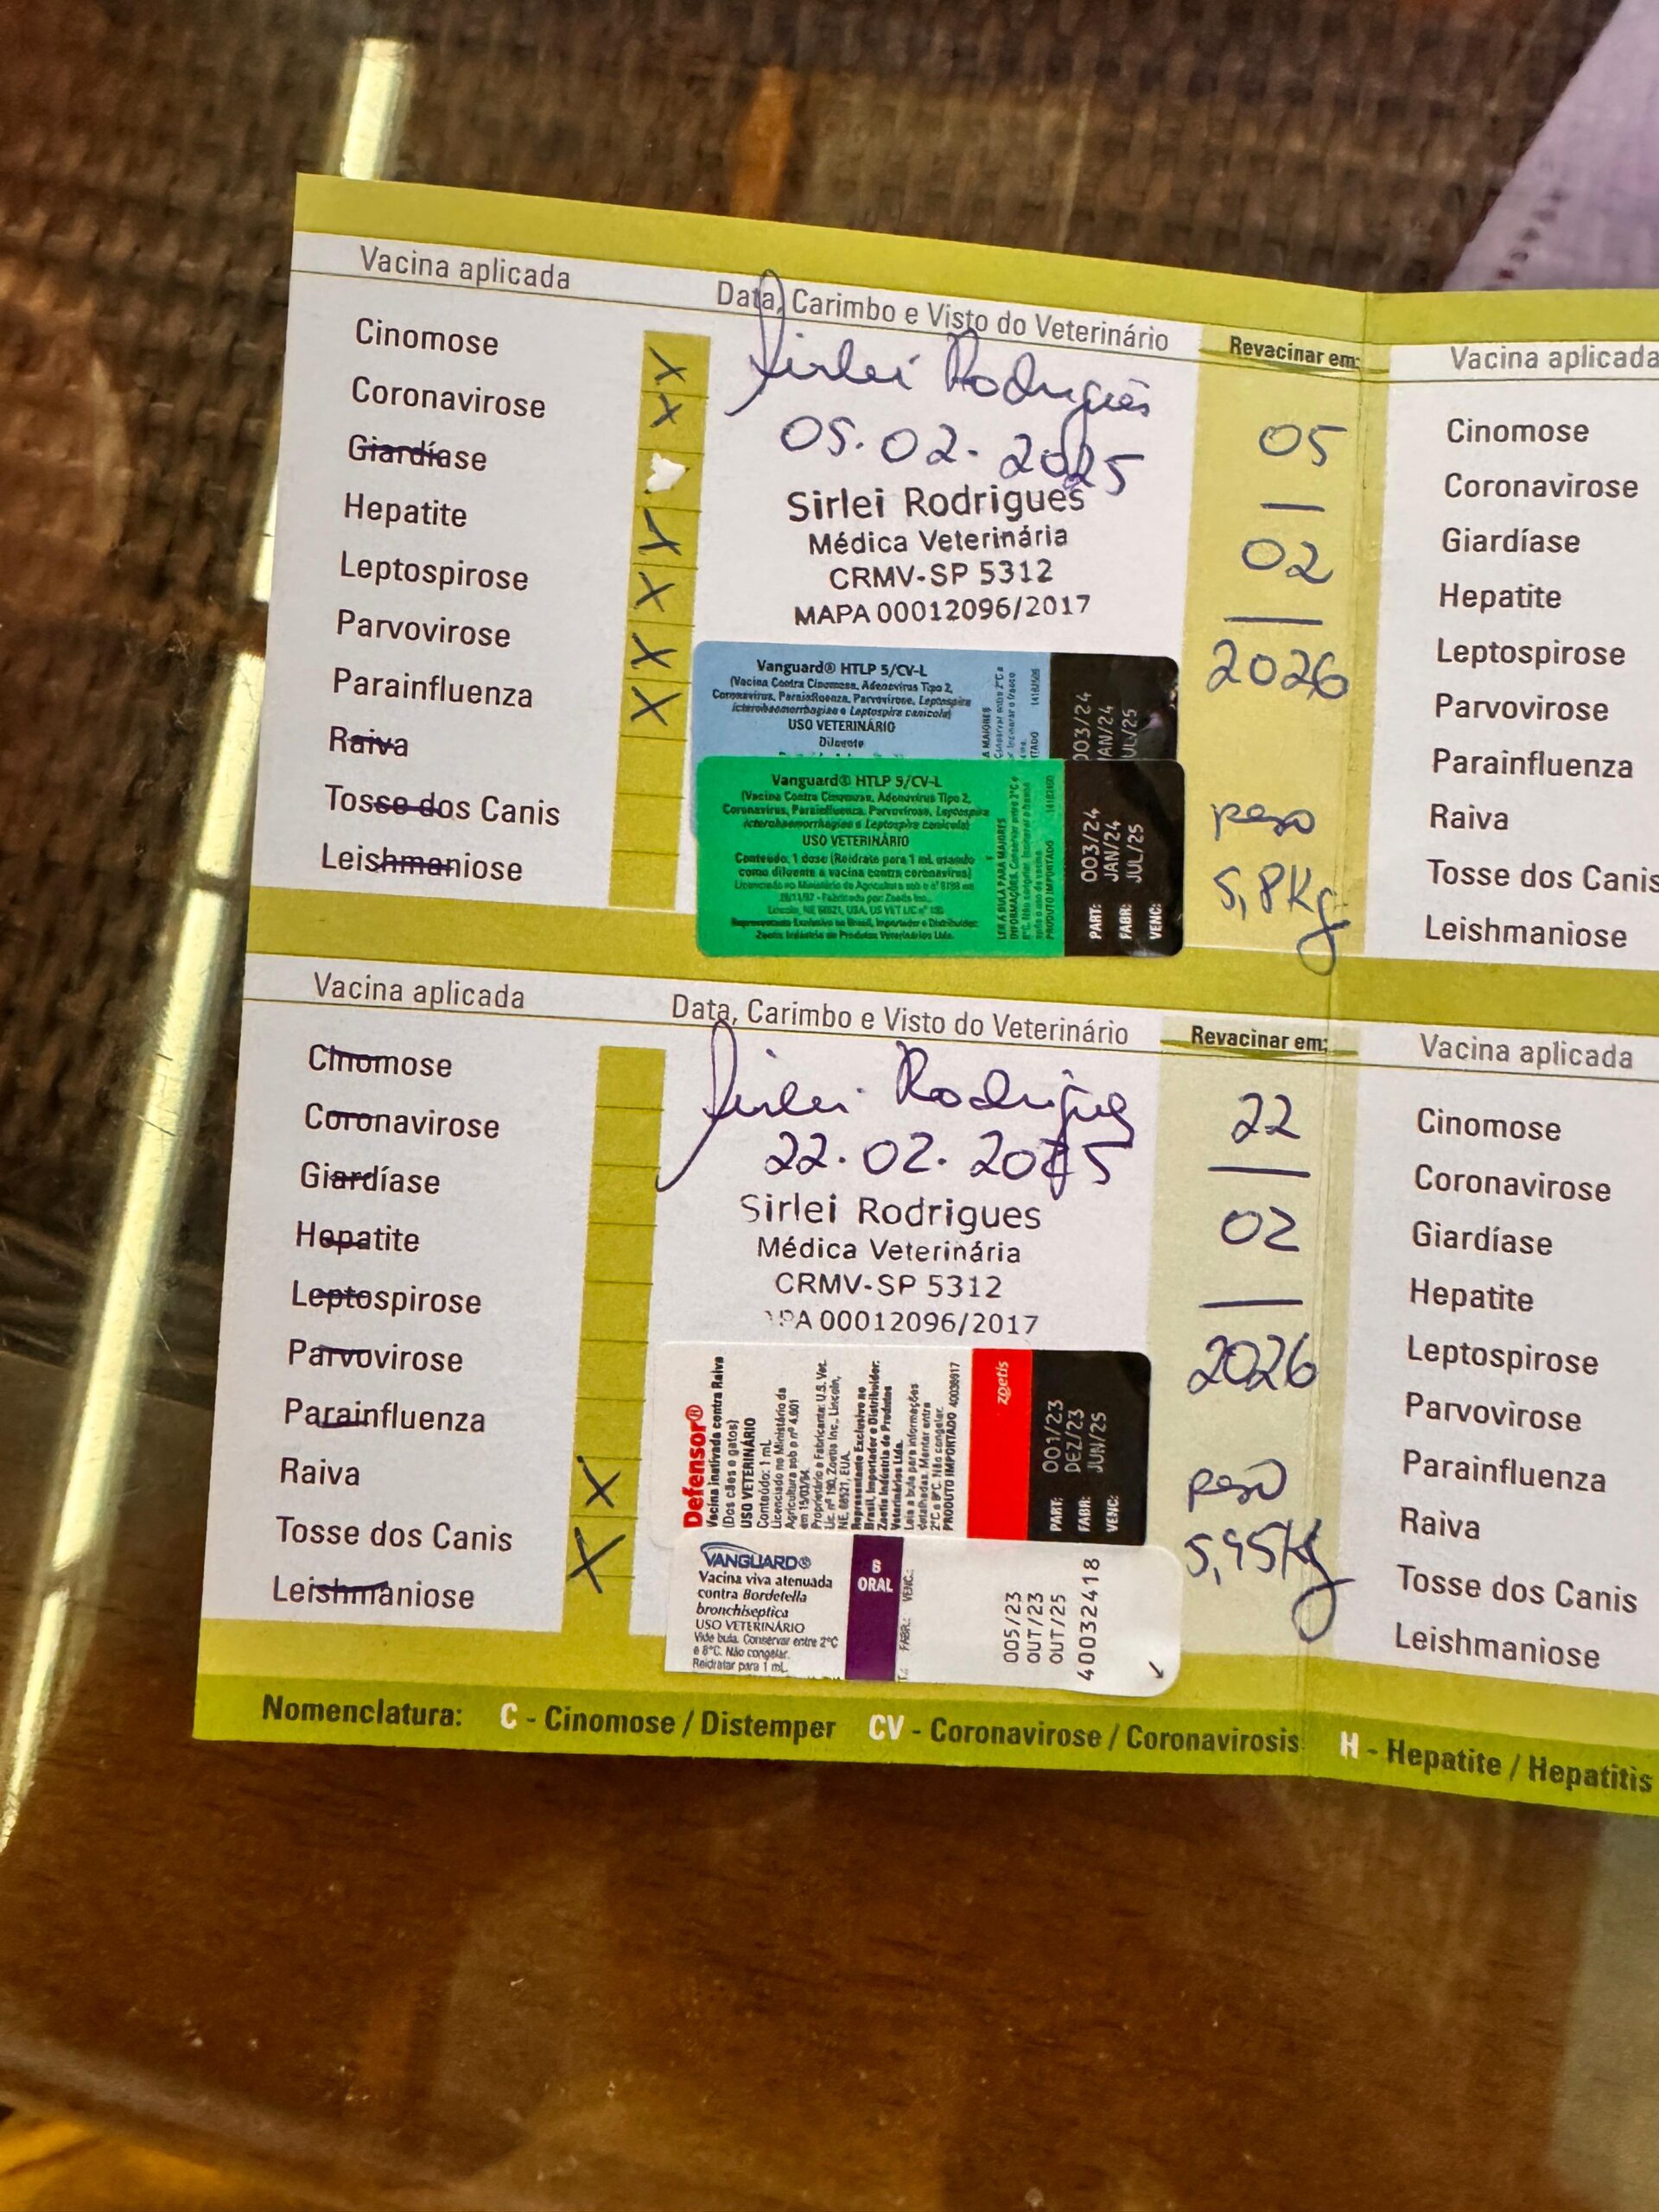 Vacina aplicada
Data, Carimbo e Visto do Veterinário
Revacinar em:
Cinomose X
Coronavirose X
Giardíase
Hepatite X
Leptospirose X
Parvovirose X
Parainfluenza X
Raiva
Tosse dos Canis
Leishmaniose
Sirlei Rodrigues
05.02.2025
Sirlei Rodrigues
Médica Veterinária
CRMV-SP 5312
MAPA 00012096/2017
Vanguard® HTLP 5/CV-L
(Vacina Contra Cinomose, Adenovírus Tipo 2,
Coronavírus, Parainfluenza, Parvovirose, Leptospira
icterohaemorrhagiae e Leptospira canicola)
USO VETERINÁRIO
Diluente
003/24
JAN/24
JUL/25
Vanguard® HTLP 5/CV-L
(Vacina Contra Cinomose, Adenovírus Tipo 2,
Coronavírus, Parainfluenza, Parvovirose, Leptospira
icterohaemorrhagiae e Leptospira canicola)
USO VETERINÁRIO
Conteúdo: 1 dose (Reidrate para 1 mL usando
como diluente a vacina contra coronavírus)
Licenciado no Ministério da Agricultura sob o nº 6198 em
Lincoln, NE 68521, USA, US VET LIC nº 190
Representante Exclusivo no Brasil, Importador e Distribuidor:
Zoetis Indústria de Produtos Veterinários Ltda.
LER A BULA PARA MAIORES
PRODUTO IMPORTADO
PART: 003/24
FABR: JAN/24
VENC: JUL/25
05
02
2026
peso
5,8Kg
Vacina aplicada
Cinomose
Coronavirose
Giardíase
Hepatite
Leptospirose
Parvovirose
Parainfluenza
Raiva
Tosse dos Canis
Leishmaniose
Vacina aplicada
Data, Carimbo e Visto do Veterinário
Revacinar em:
Cinomose
Coronavirose
Giardíase
Hepatite
Leptospirose
Parvovirose
Parainfluenza
Raiva X
Tosse dos Canis X
Leishmaniose
Sirlei Rodrigues
22.02.2025
Sirlei Rodrigues
Médica Veterinária
CRMV-SP 5312
PA 00012096/2017
Defensor®
Vacina inativada contra Raiva
(Dos cães e gatos)
USO VETERINÁRIO
Conteúdo: 1 mL
Licenciado no Ministério da
Agricultura sob o nº 4.601
em 15/03/94.
Proprietário e Fabricante: U.S. Vet.
Lic. nº 190, Zoetis Inc., Lincoln,
NE, 68521, EUA.
Representante Exclusivo no
Brasil, Importador e Distribuidor:
Zoetis Indústria de Produtos
Veterinários Ltda.
Leia a bula para informações
detalhadas. Manter entre
2°C e 8°C. Não congelar.
PRODUTO IMPORTADO 40038617
zoetis
PART: 001/23
FABR: DEZ/23
VENC: JUN/25
VANGUARD®
Vacina viva atenuada
contra Bordetella
bronchiseptica
USO VETERINÁRIO
Vide bula. Conservar entre 2°C
e 8°C. Não congelar.
Reidratar para 1 mL.
B
ORAL
FABR.: VENC.:
005/23
OUT/23
OUT/25
40032418
22
02
2026
peso
5,95Kg
Vacina aplicada
Cinomose
Coronavirose
Giardíase
Hepatite
Leptospirose
Parvovirose
Parainfluenza
Raiva
Tosse dos Canis
Leishmaniose
Nomenclatura: C - Cinomose / Distemper CV - Coronavirose / Coronavirosis H - Hepatite / Hepatitis